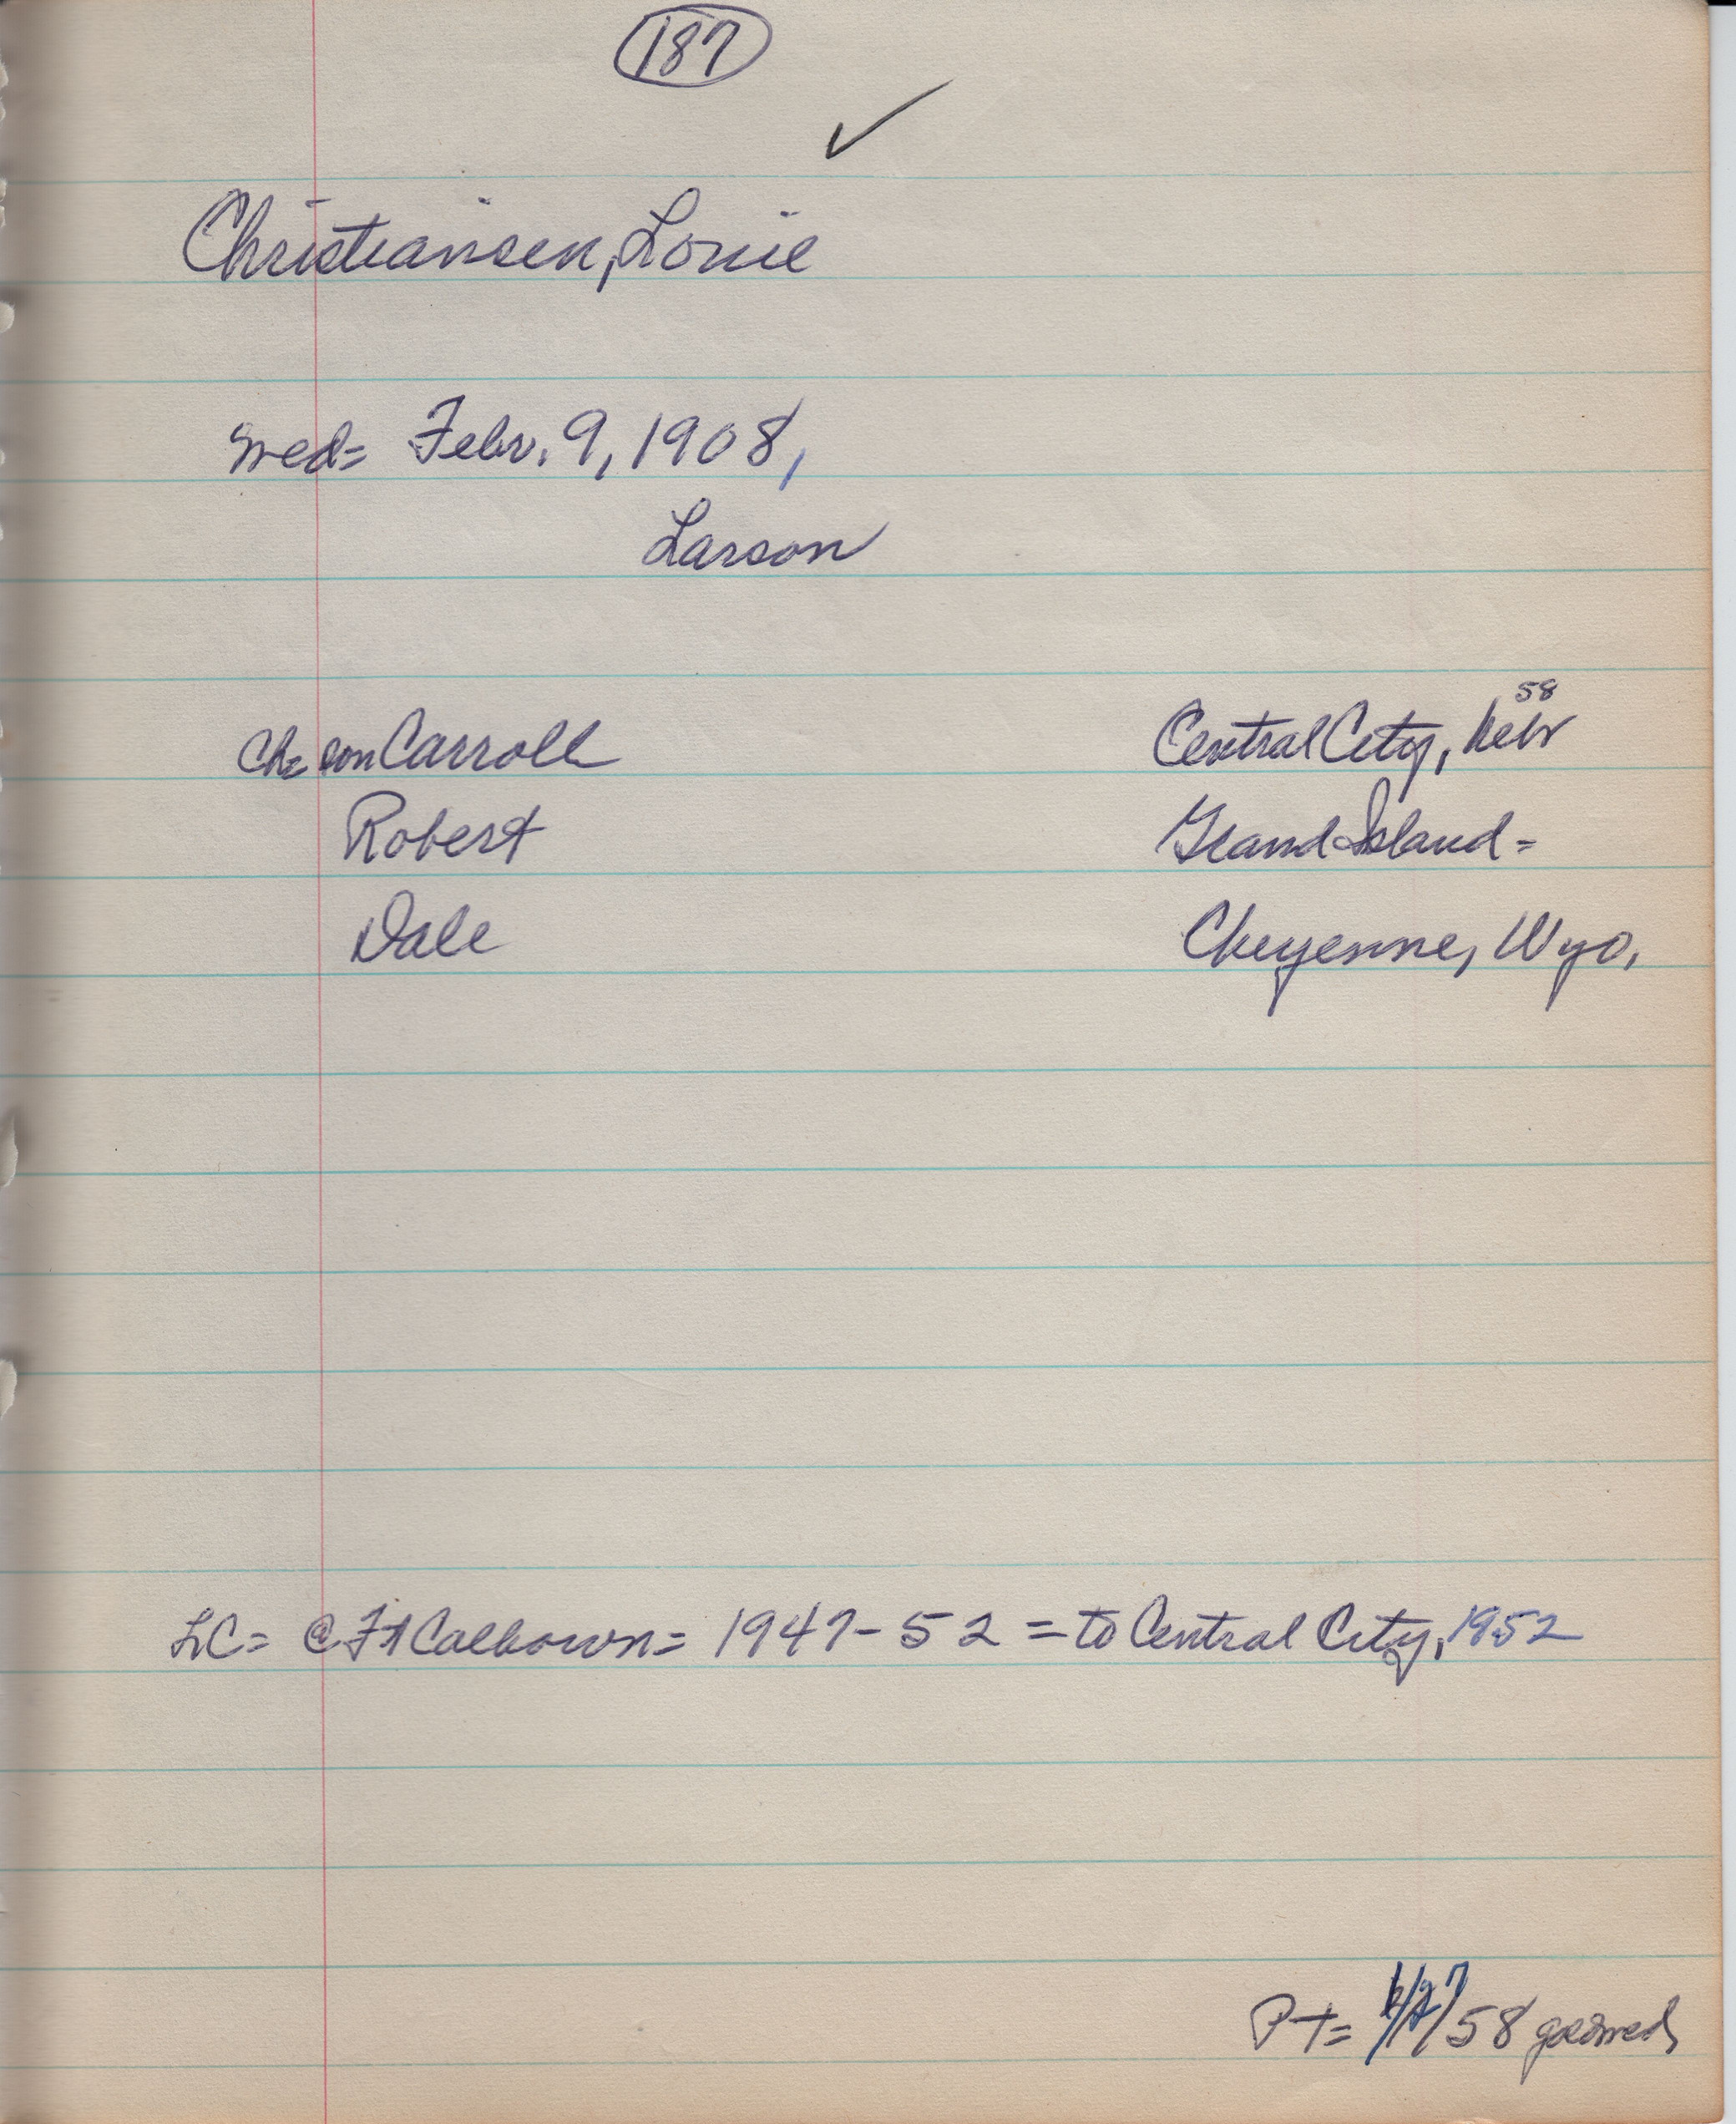 187
✓
Christiansen, Louie
Med= Febr. 9, 1908,
Larson
58
Ch= son Carroll Central City, Nebr
Robert Grand Island =
Dale Cheyenne, Wyo.
LC= @ Ft Calhown= 1947-52 = to Central City, 1952
PT= /58